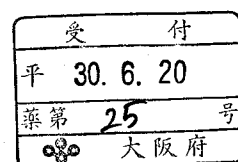 受 付
平 30. 6. 20
薬第 25 号
大阪府